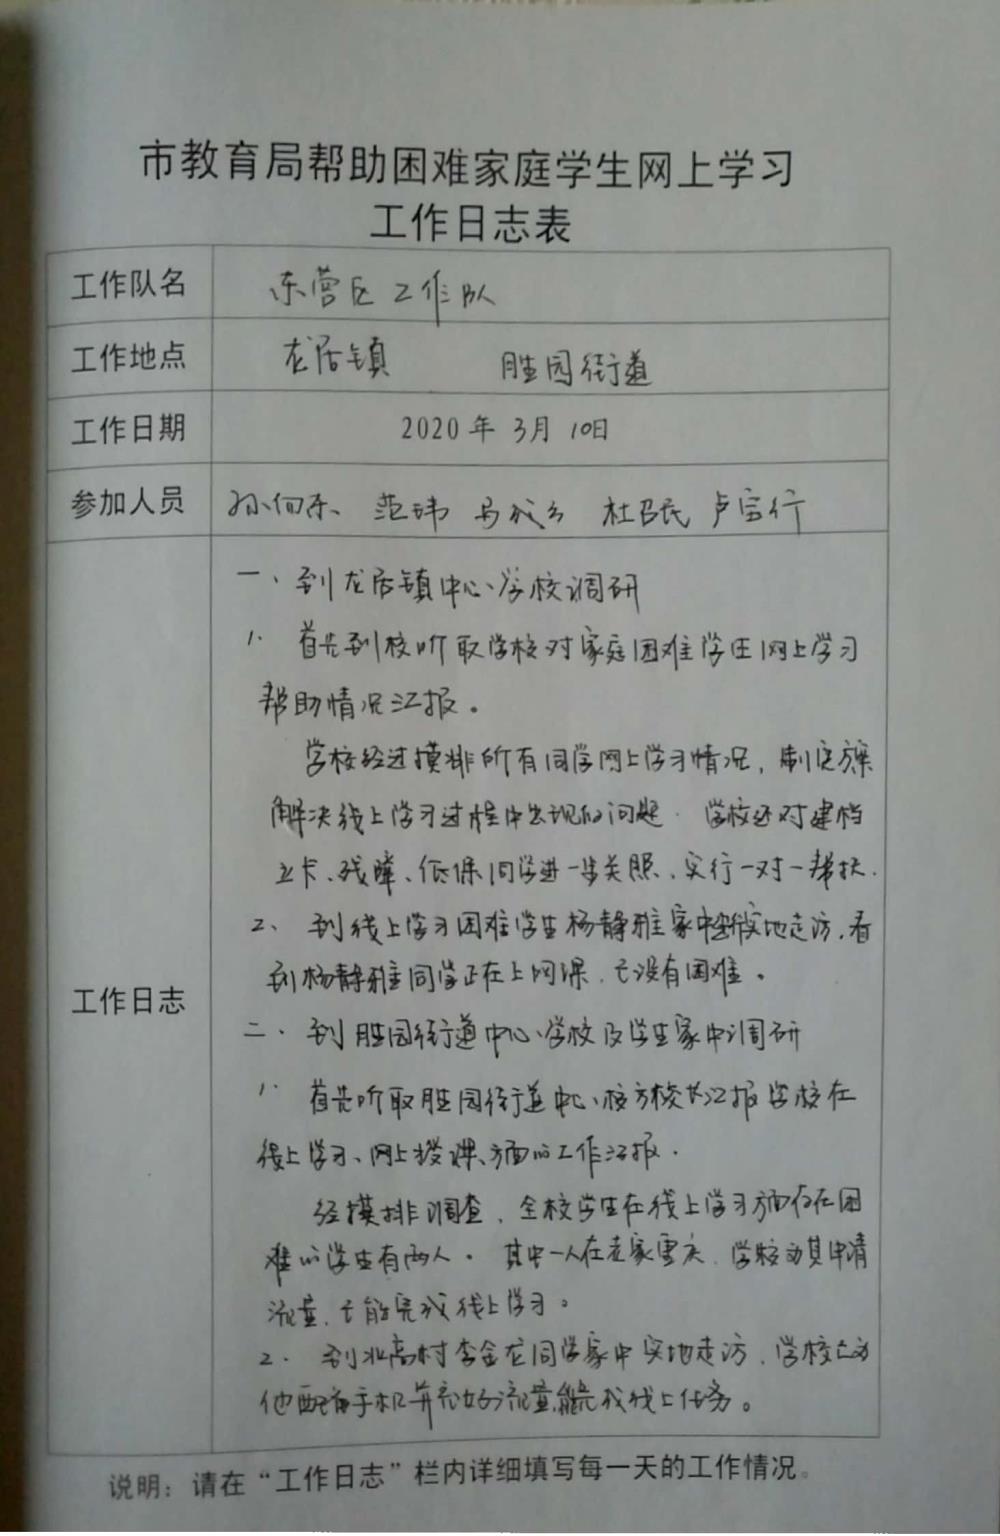 市教育局帮助困难家庭学生网上学习
工作日志表
工作队名 东营区工作队
工作地点 龙居镇 胜园街道
工作日期 2020年3月10日
参加人员 孙向东 范玮 马成乡 杜召民 卢宝行
工作日志
一、到龙居镇中心学校调研
1. 首先到校听取学校对家庭困难学生网上学习
帮助情况汇报。
学校经过摸排所有同学网上学习情况，制定方案
解决线上学习过程中出现的问题. 学校还对建档
立卡、残障、低保同学进一步关照，实行一对一帮扶.
2、到线上学习困难学生杨静雅家中实地走访，看
到杨静雅同学正在上网课，已没有困难。
二、到胜园街道中心学校及学生家中调研
1. 首先听取胜园街道中心校方校长汇报学校在
线上学习、网上授课方面的工作汇报.
经摸排调查，全校学生在线上学习方面存在困
难的学生有两人。其中一人在老家重庆，学校为其申请
流量，已能完成线上学习。
2. 到北高村李金龙同学家中实地走访，学校已为
他配备手机并充好流量，能完成线上任务。
说明：请在“工作日志”栏内详细填写每一天的工作情况。